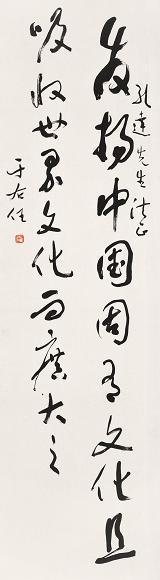 孔達先生法正
發揚中國固有文化且
吸收世界文化而廣大之
于右任